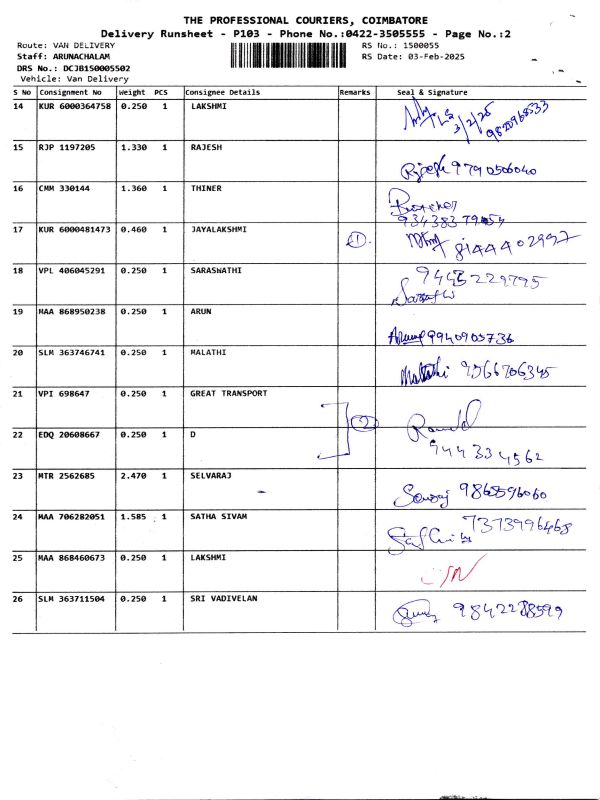 THE PROFESSIONAL COURIERS, COIMBATORE
Delivery Runsheet - P103 - Phone No.:0422-3505555 - Page No.:2
Route: VAN DELIVERY RS No.: 1500055
Staff: ARUNACHALAM RS Date: 03-Feb-2025
DRS No.: DCJB150005502
Vehicle: Van Delivery
S No Consignment No Weight PCS Consignee Details Remarks Seal & Signature
14 KUR 6000364758 0.250 1 LAKSHMI 3/2/25
15 RJP 1197205 1.330 1 RAJESH Rjesh 9790506040
16 CMM 330144 1.360 1 THINER
17 KUR 6000481473 0.460 1 JAYALAKSHMI (1)
18 VPL 406045291 0.250 1 SARASWATHI 9445229795
19 MAA 868950238 0.250 1 ARUN 9940905736
20 SLM 363746741 0.250 1 MALATHI Malathi 9566706345
21 VPI 698647 0.250 1 GREAT TRANSPORT (2)
22 EDQ 20608667 0.250 1 D 9443334562
23 MTR 2562685 2.470 1 SELVARAJ 9865596060
24 MAA 706282051 1.585 1 SATHA SIVAM 7373996468
25 MAA 868460673 0.250 1 LAKSHMI
26 SLM 363711504 0.250 1 SRI VADIVELAN